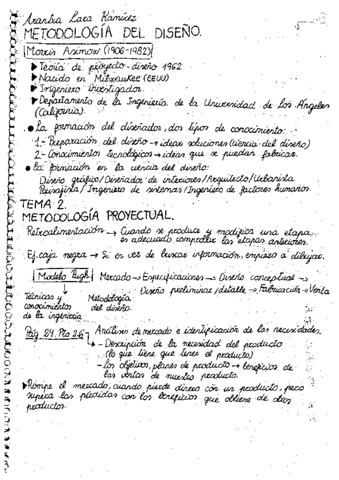 Arantxa Lara Ramírez
METODOLOGÍA DEL DISEÑO.
Morris Asimow (1906-1982)
▸Teoría de proyecto-diseño 1962
▸Nacido en Milwaukee (EEUU)
▸Ingeniero investigador.
▸Departamento de la Ingeniería de la Universidad de Los Ángeles
(California).
• La formación del diseñador, dos tipos de conocimiento:
1.- Preparación del diseño → idear soluciones (ciencia del diseño)
2.- Conocimientos tecnológicos → ideas que se puedan fabricar.
• La formación en la ciencia del diseño:
Diseño gráfico/Diseñador de interiores/Arquitecto/Urbanista
Paisajista/Ingeniero de sistemas/Ingeniero de factores humanos.
TEMA 2.
METODOLOGÍA PROYECTUAL.
Retroalimentación → Cuando se produce y modifica una etapa
es adecuado comprobar las etapas anteriores.
Ej. caja negra → Si en vez de buscar información, empiezo a dibujar.
Modelo Pugh Mercado → Especificaciones → Diseño conceptual →
Diseño preliminar/detalle → Fabricación → Venta
Técnicas y conocimientos de la ingeniería
Metodología del diseño.
Pág. 24. Pto 2.6 Análisis de mercado e identificación de las necesidades.
- Descripción de la necesidad del producto
(lo que tiene que tener el producto)
- Los objetivos, planes de producto → beneficios de
las ventas de nuestro producto.
▸Rompe el mercado, cuando pierde dinero con un producto, pero
supera las pérdidas con los beneficios que obtiene de otros
productos.